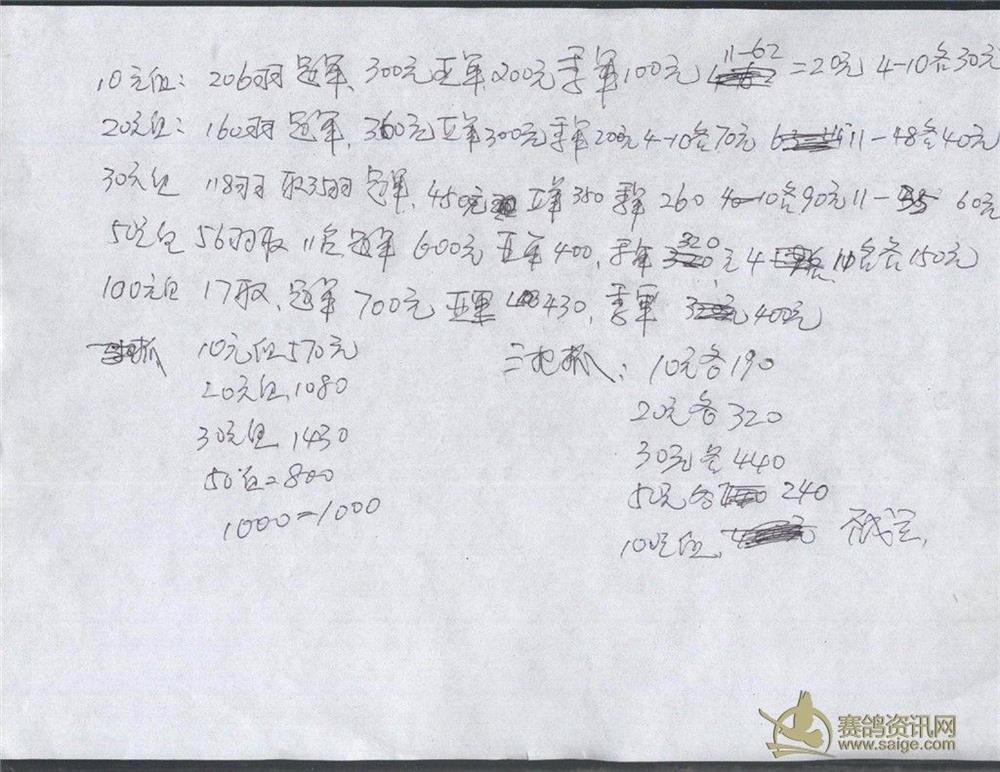 10元组: 206羽 冠军, 300元 亚军 200元 季军 100元 11-62 =20元 4-10各30元
20元组: 160羽 冠军, 360元 亚军 300元 季军 200元 4-10各70元 11-48各40元
30元组 118羽 取35羽 冠军, 450元 亚军 350 季军 260 4-10各90元 11-35 60元
50元组 56羽取 11名 冠军 600元 亚军 400, 季军 320元 4 各150元
100元组 17取, 冠军 700元 亚军 430, 季军 400元
10元组570元
20元组, 1080
30元组 1430
50组=800
1000=1000
三把抓: 10元各190
20元各320
30元各440
50元各 240
100元组,
赛鸽资讯网
www.saige.com